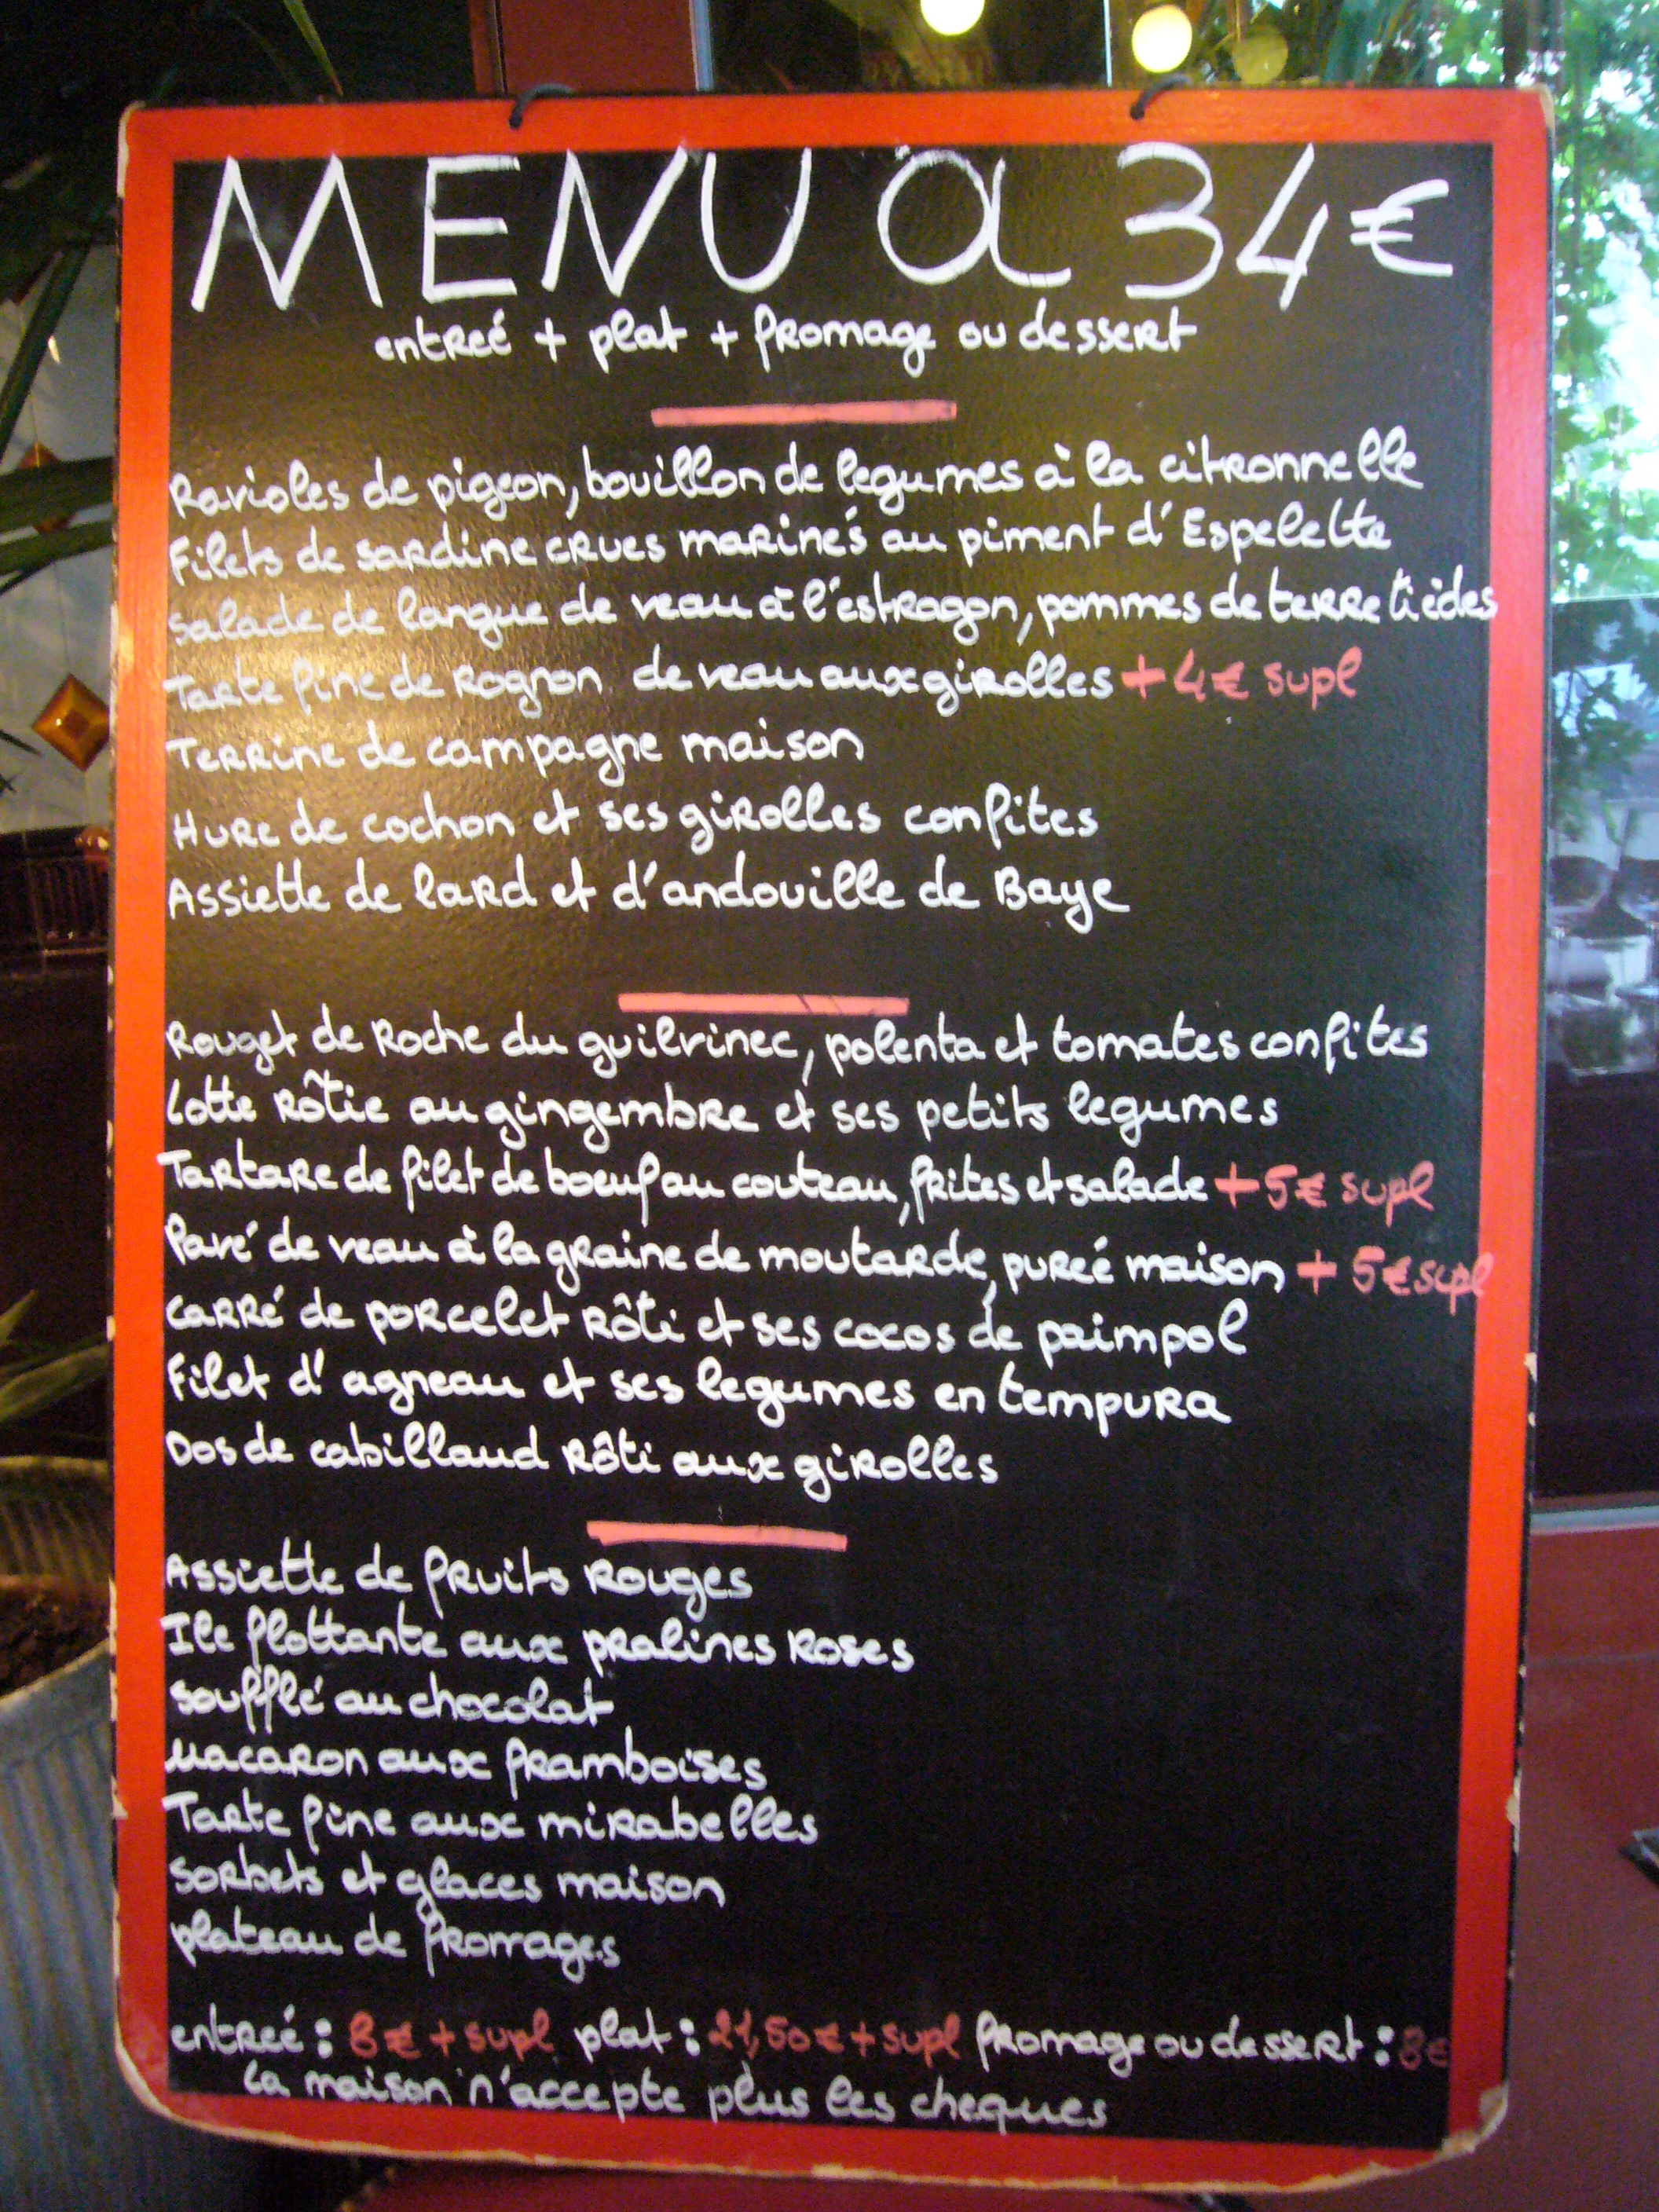 MENU a 34€
entreé + plat + fromage ou dessert
Ravioles de pigeon, bouillon de legumes à la citronnelle
Filets de sardine crues marinés au piment d'Espelette
Salade de langue de veau à l'estragon, pommes de terre tièdes
Tarte fine de Rognon de veau aux girolles + 4€ supl
Terrine de campagne maison
Hure de cochon et ses girolles confites
Assiette de lard et d'andouille de Baye
Rouget de Roche du guilvinec, polenta et tomates confites
Lotte rôtie au gingembre et ses petits legumes
Tartare de filet de boeuf au couteau, frites et salade + 5€ supl
Pavé de veau à la graine de moutarde, pureé maison + 5€ supl
Carré de porcelet rôti et ses cocos de paimpol
Filet d'agneau et ses legumes en tempura
Dos de cabillaud rôti aux girolles
Assiette de fruits rouges
Ile flottante aux pralines roses
Soufflé au chocolat
Macaron aux framboises
Tarte fine aux mirabelles
Sorbets et glaces maison
plateau de fromages
entreé : 8€ + supl plat : 21,50€ + supl fromage ou dessert : 8€
La maison n'accepte plus les cheques